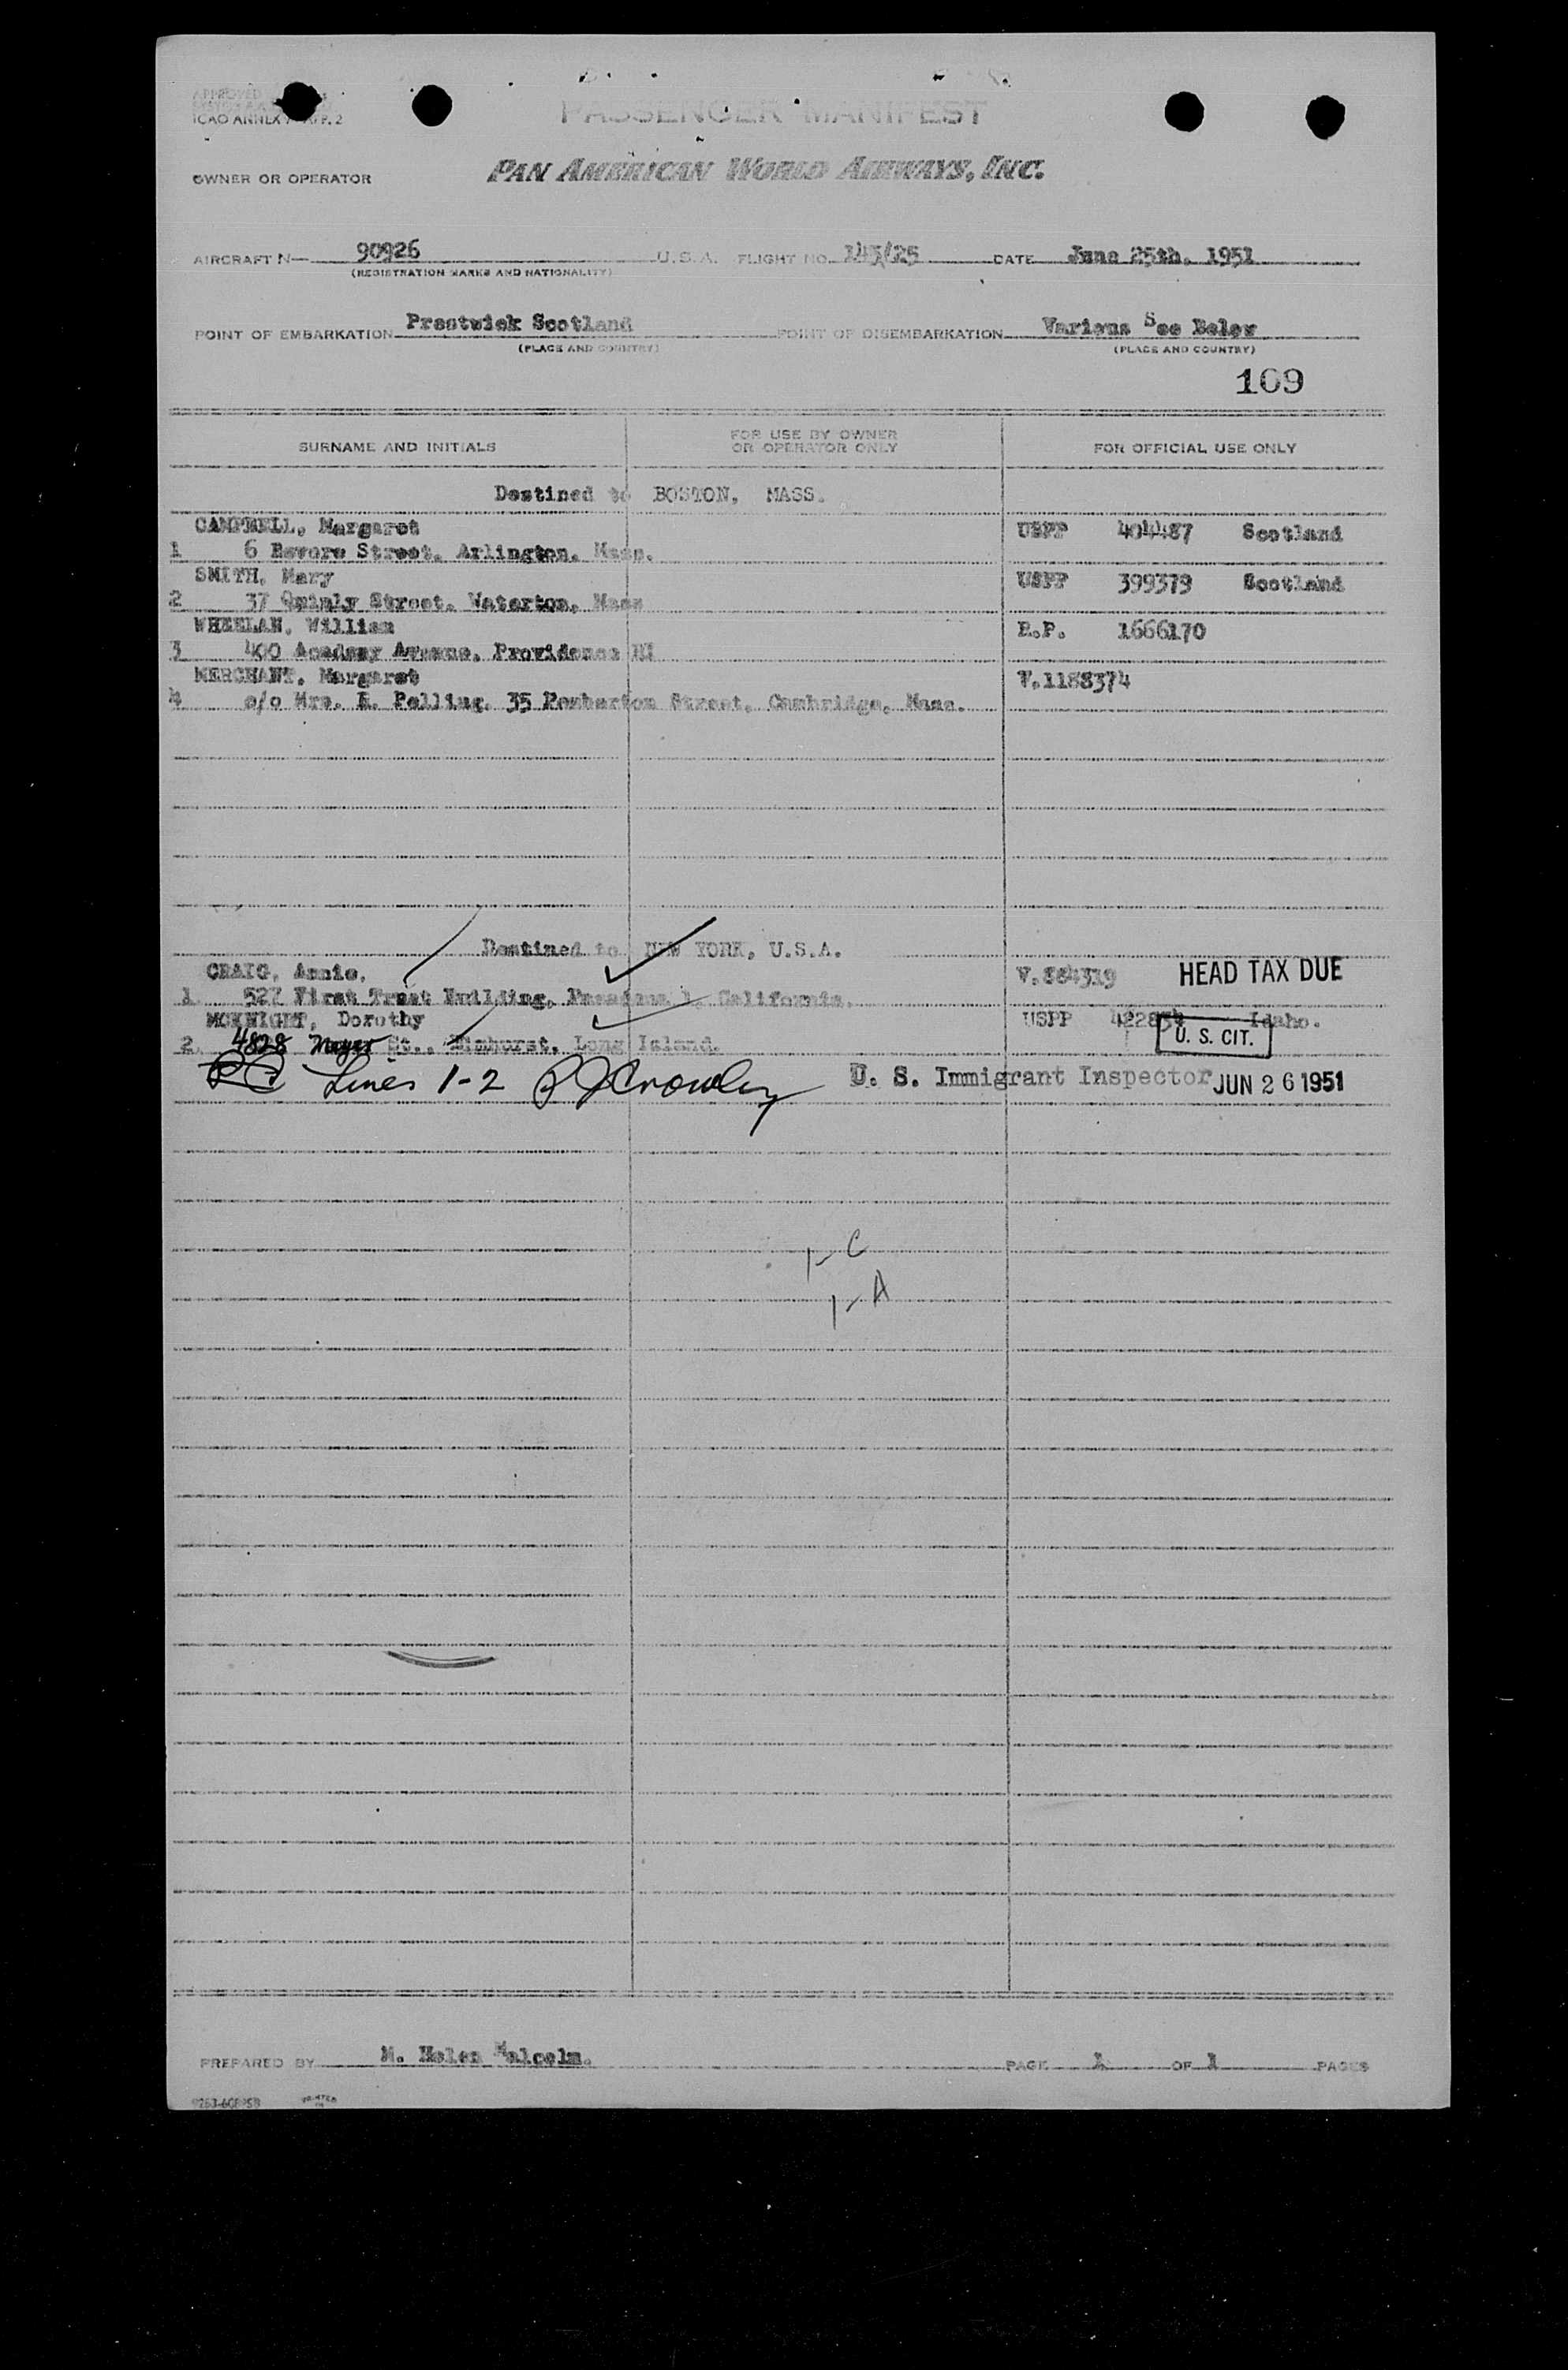 APPROVED
ICAO ANNEX 9 APP. 2
PASSENGER MANIFEST
OWNER OR OPERATOR PAN AMERICAN WORLD AIRWAYS, INC.
AIRCRAFT N— 90926 U.S.A. FLIGHT NO. 145/25 DATE June 25th. 1951
(REGISTRATION MARKS AND NATIONALITY)
POINT OF EMBARKATION Prestwick Scotland POINT OF DISEMBARKATION Various See Below
(PLACE AND COUNTRY) (PLACE AND COUNTRY)
169
SURNAME AND INITIALS FOR USE BY OWNER OR OPERATOR ONLY FOR OFFICIAL USE ONLY
Destined to BOSTON, MASS.
CAMPBELL, Margaret USPP 404487 Scotland
1 6 Street, Arlington, Mass.
SMITH, Mary USPP 399379 Scotland
2 37 Street, Waterton, Mass
WHEELAN, William R.P. 1666170
3 400 Academy Avenue, Providence RI
MERCHANT, Margaret V.1188374
4 c/o Mrs. E. Pelling, 35 Pemberton Street, Cambridge, Mass.
Destined to NEW YORK, U.S.A.
CRAIG, Annie, V.884319 HEAD TAX DUE
1 527 First Trust Building, Pasadena 1, California.
MCKNIGHT, Dorothy USPP 422854 Idaho.
2 4828 St., Elmhurst, Long Island. U. S. CIT.
Lines 1-2 P J Crowley U. S. Immigrant Inspector JUN 26 1951
1-C
1-A
PREPARED BY M. Helen Malcolm. PAGE 1 OF 1 PAGES